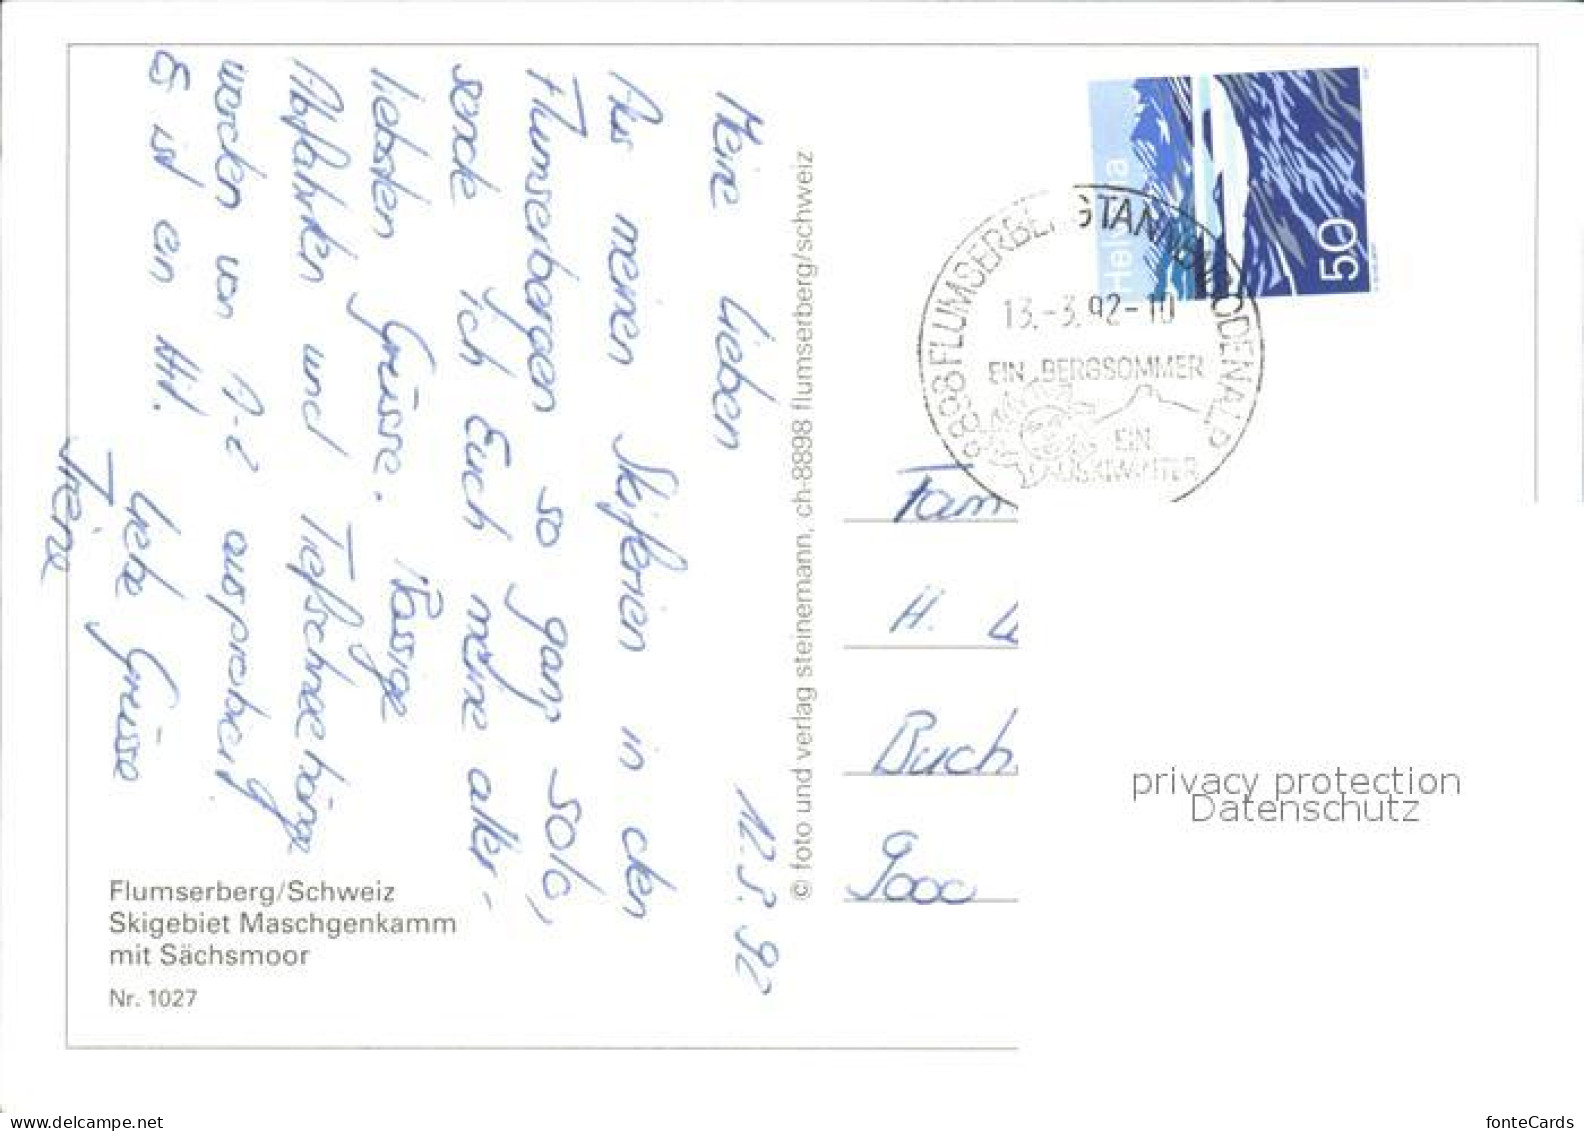 12.3.92
Meine Lieben
Aus meinen Skiferien in den
Flumserbergen so ganz solo,
sende ich Euch meine aller-
liebsten Grüsse. Rassige
Abfahrten und Tiefschneehänge
werden von A-Z ausprobiert.
Es ist ein Hit.
Liebe Grüsse
Irene
Flumserberg/Schweiz
Skigebiet Maschgenkamm
mit Sächsmoor
Nr. 1027
© foto und verlag steinemann, ch-8898 flumserberg/schweiz
Helvetia
50
8898 FLUMSERBERG TANNENBODENALP
13.-3.92-10
EIN BERGSOMMER
EIN
Fam
H.
Buch
9000
privacy protection
Datenschutz
www.delcampe.net
fonteCards